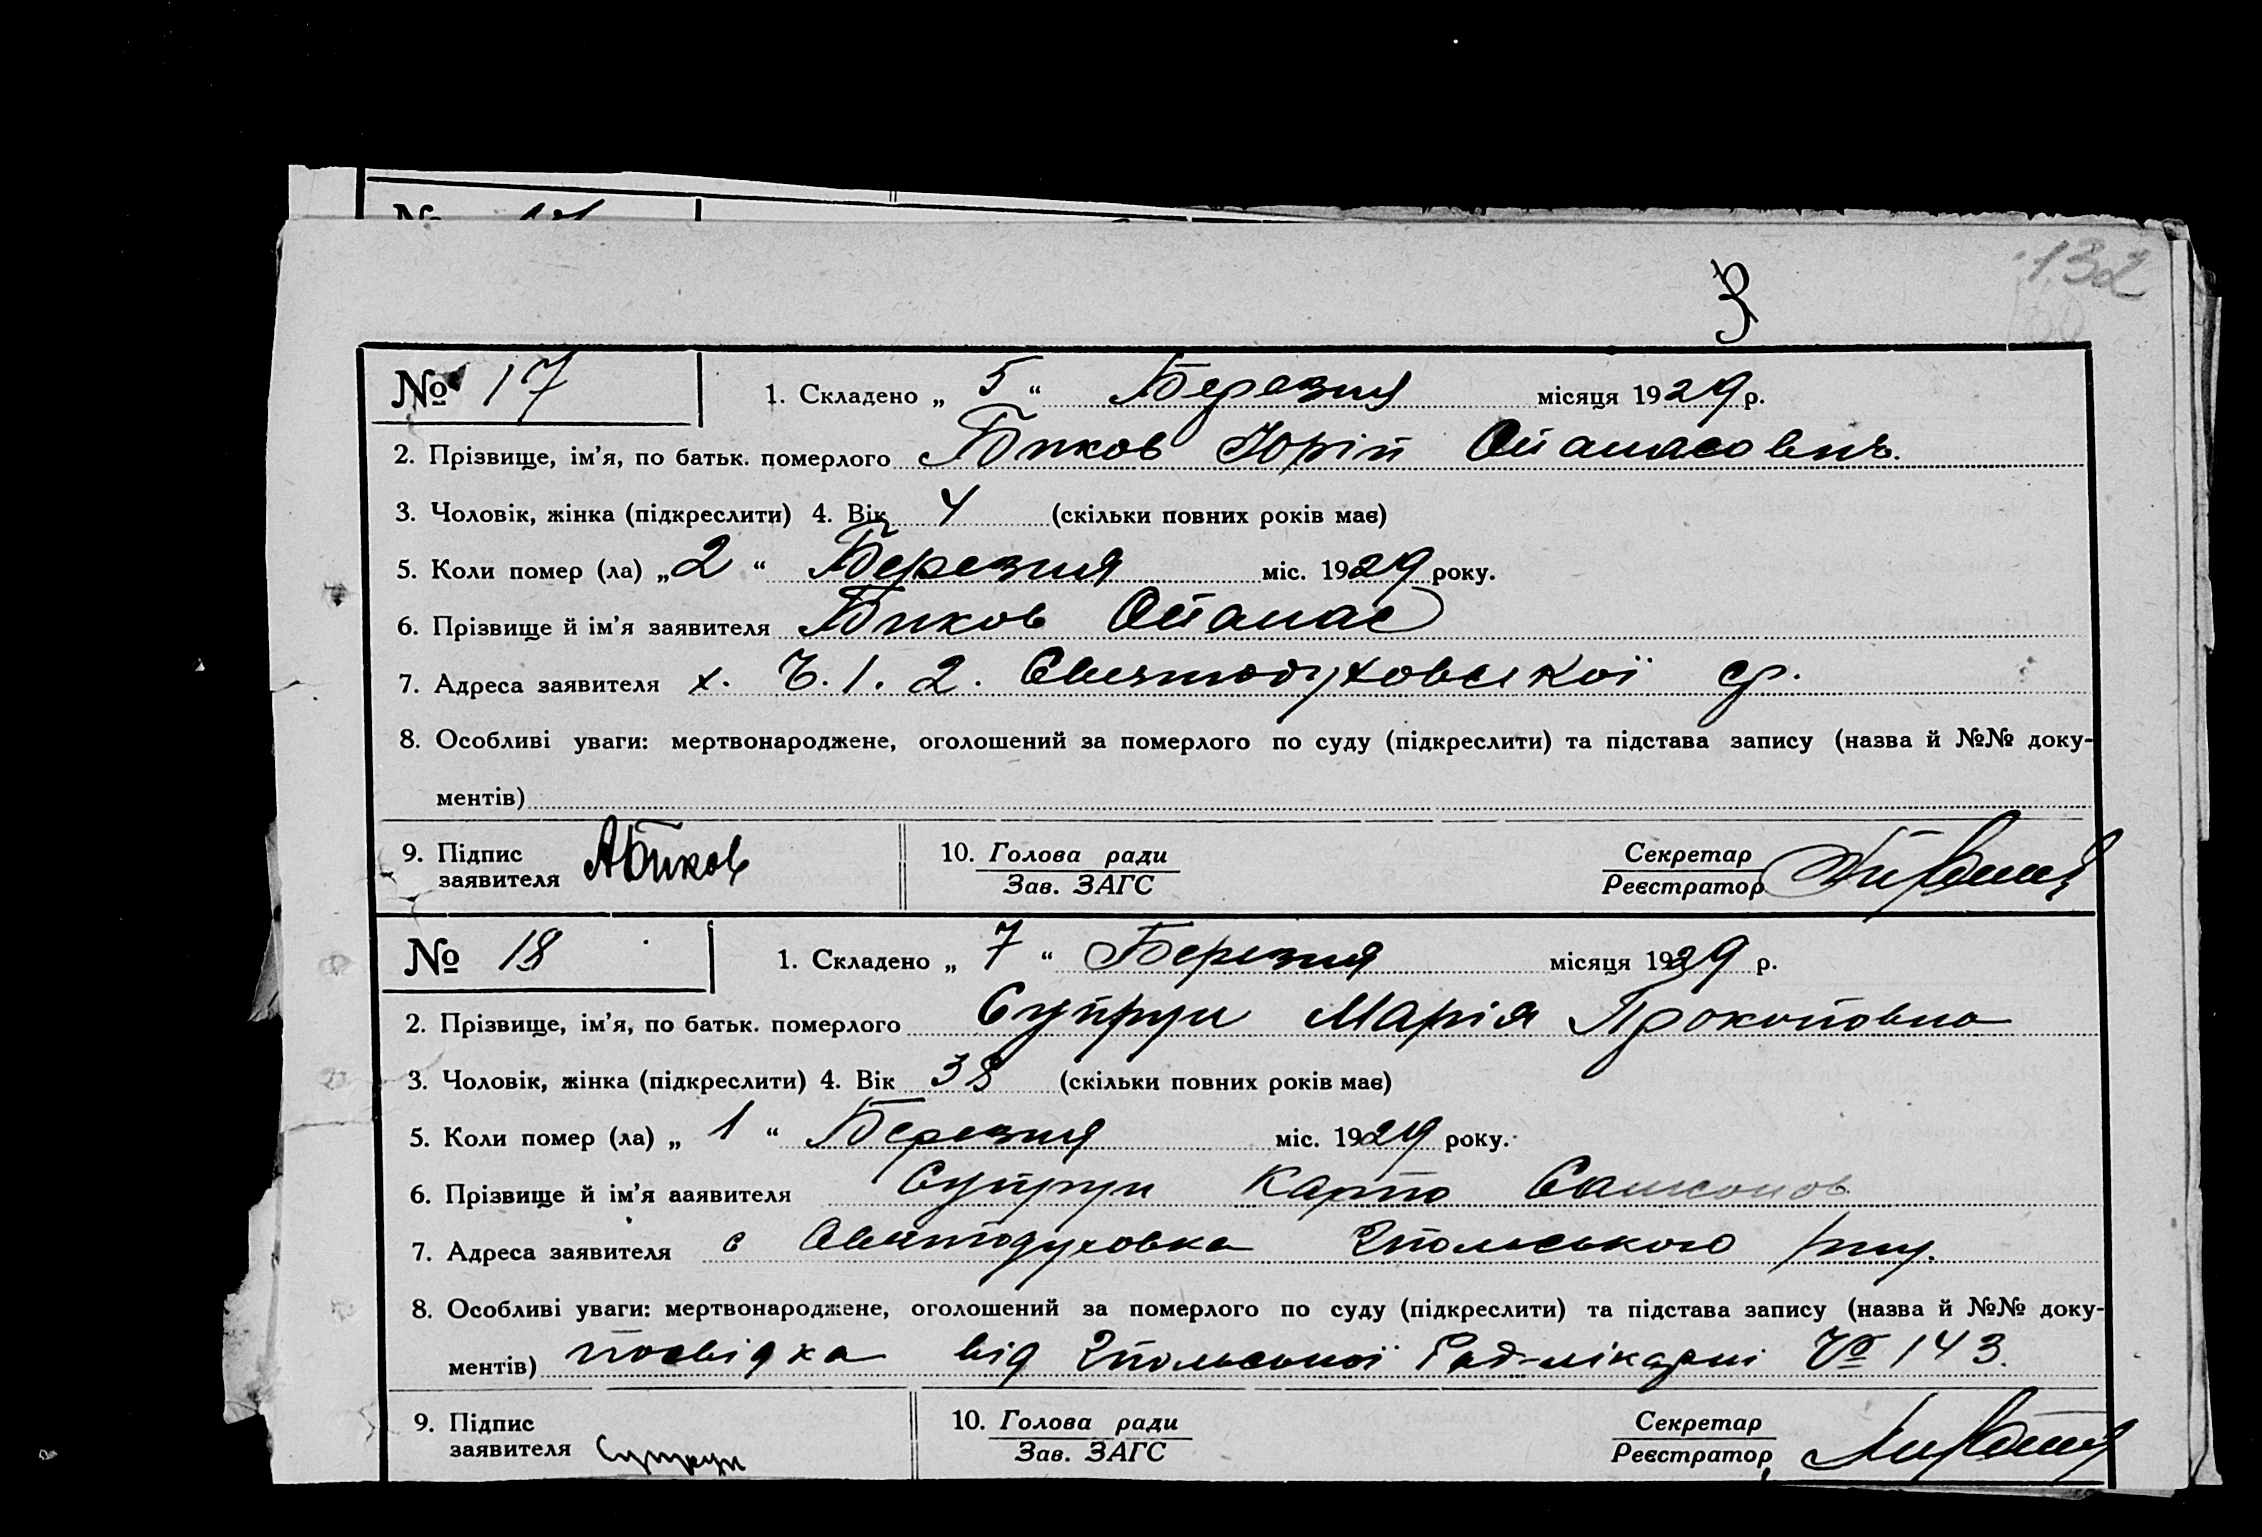 132
№ 17
1. Складено „ 5 “ Березня місяця 1929 р.
2. Прізвище, ім’я, по батьк. померлого Биков Юрій Опанасович.
3. Чоловік, жінка (підкреслити) 4. Вік 4 (скільки повних років має)
5. Коли помер (ла) „ 2 “ Березня міс. 1929 року.
6. Прізвище й ім’я заявителя Биков Опанас
7. Адреса заявителя х. Ч. 1. 2. Святодуховської ср.
8. Особливі уваги: мертвонароджене, оголошений за померлого по суду (підкреслити) та підстава запису (назва й №№ доку-
ментів)
9. Підпис заявителя АБиков
10. Голова ради
Зав. ЗАГС
Секретар
Реєстратор
№ 18
1. Складено „ 7 “ Березня місяця 1929 р.
2. Прізвище, ім’я, по батьк. померлого Супрун Марія Прокоповна
3. Чоловік, жінка (підкреслити) 4. Вік 38 (скільки повних років має)
5. Коли помер (ла) „ 1 “ Березня міс. 1929 року.
6. Прізвище й ім’я ааявителя Супрун Карпо Самсонов
7. Адреса заявителя с Святодуховка
8. Особливі уваги: мертвонароджене, оголошений за померлого по суду (підкреслити) та підстава запису (назва й №№ доку-
ментів) посвідка від Рад-лікарні № 143.
9. Підпис заявителя Супрун
10. Голова ради
Зав. ЗАГС
Секретар
Реєстратор